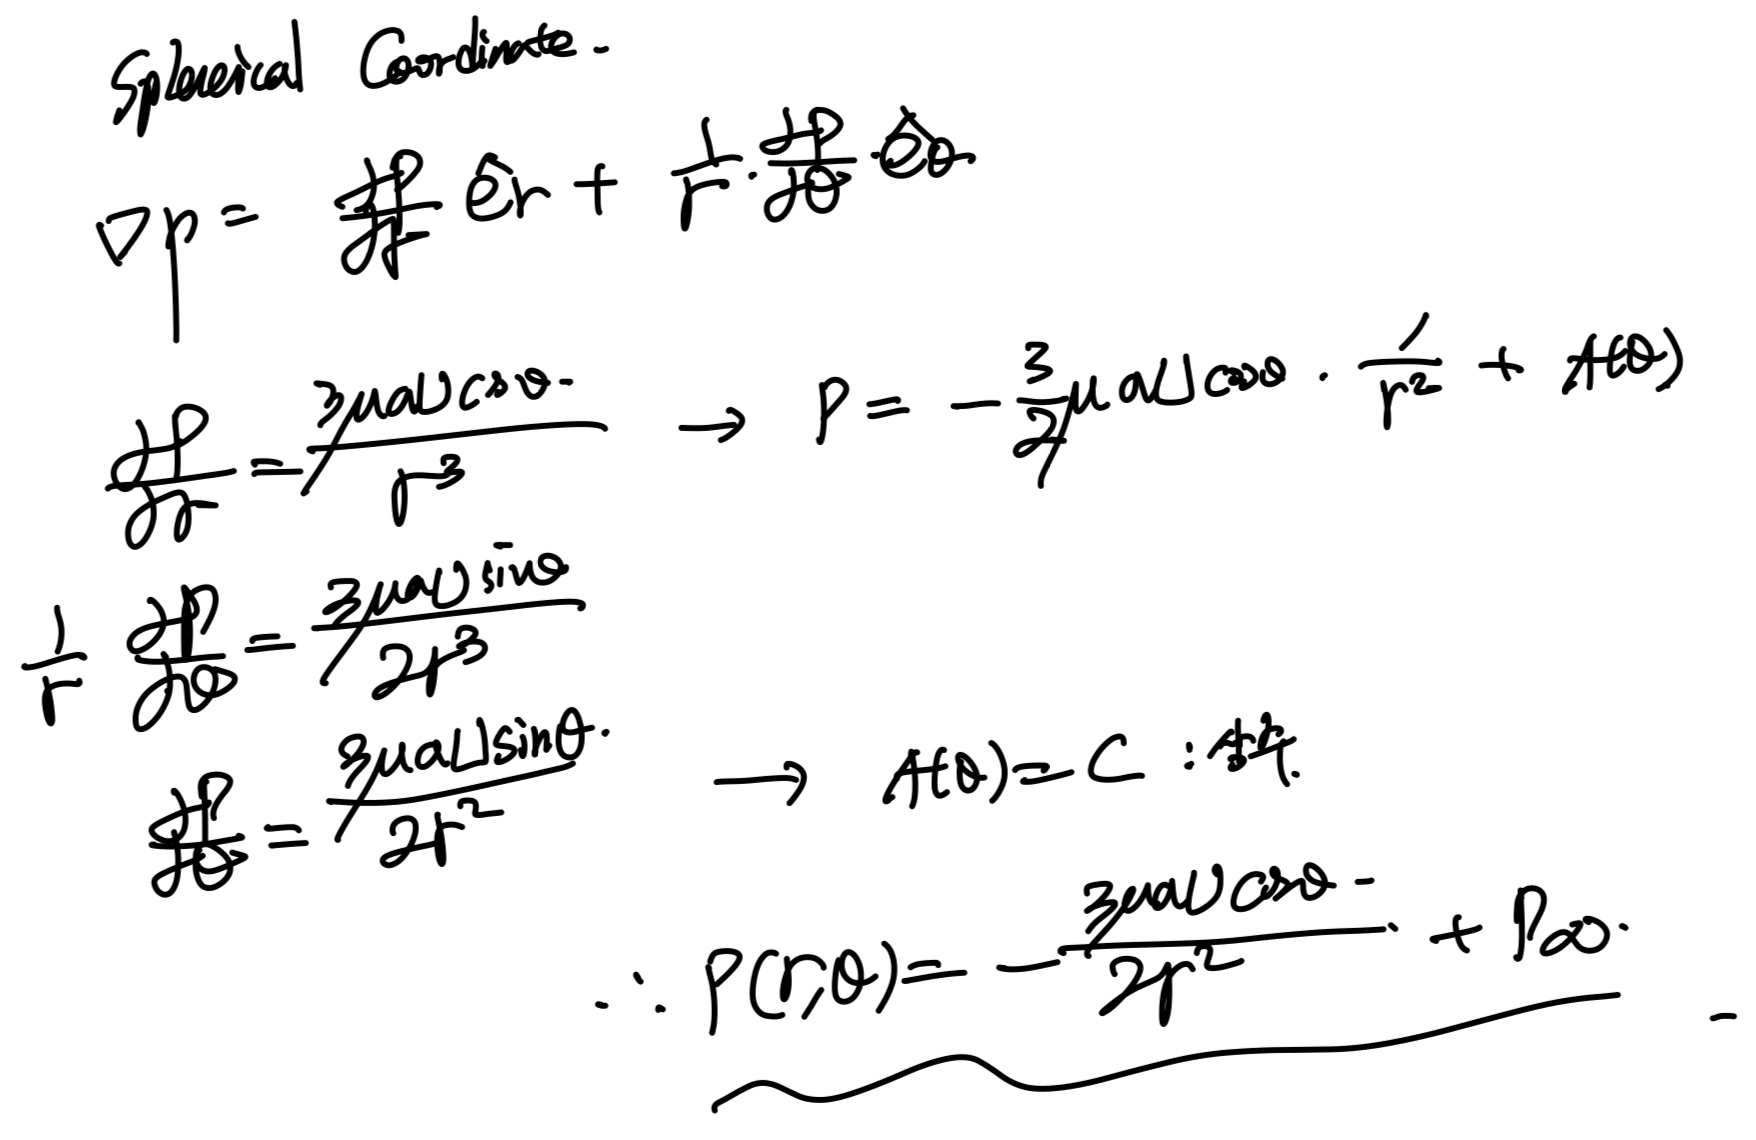 Spherical Coordinate.
∇p = ∂P/∂r êr + 1/r · ∂P/∂θ · êθ
∂P/∂r = 3μaU cosθ / r³ → P = - 3/2 μaU cosθ · 1/r² + A(θ)
1/r ∂P/∂θ = 3μaU sinθ / 2r³
∂P/∂θ = 3μaU sinθ / 2r² → A(θ) = C : 상수.
∴ P(r,θ) = - 3μaU cosθ / 2r² + P∞.